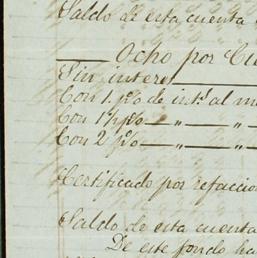 Saldo de esta cuenta
Ocho por
Sin interes
Con 1 p% de intˢ al
Con 1½ p% — „ — „
Con 2 p% — „ — „
Certificado por refaccio
Saldo de esta cuenta
De este fondo ha